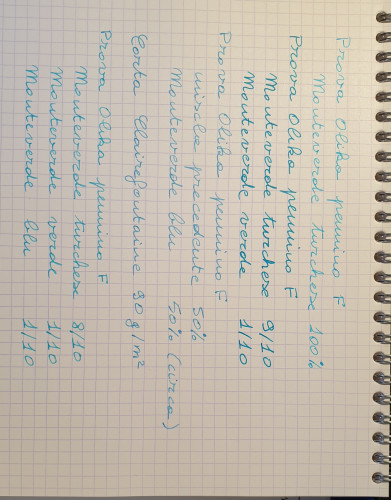 Prova Olika pennino F
Monteverde turchese 100%
Prova Olika pennino F
Monteverde turchese 9/10
Monteverde verde 1/10
Prova Olika pennino F
miscela precedente 50%
Monteverde blu 50% (circa)
Carta Clairefontaine 90 g/m²
Prova Olika pennino F
Monteverde turchese 8/10
Monteverde verde 1/10
Monteverde blu 1/10